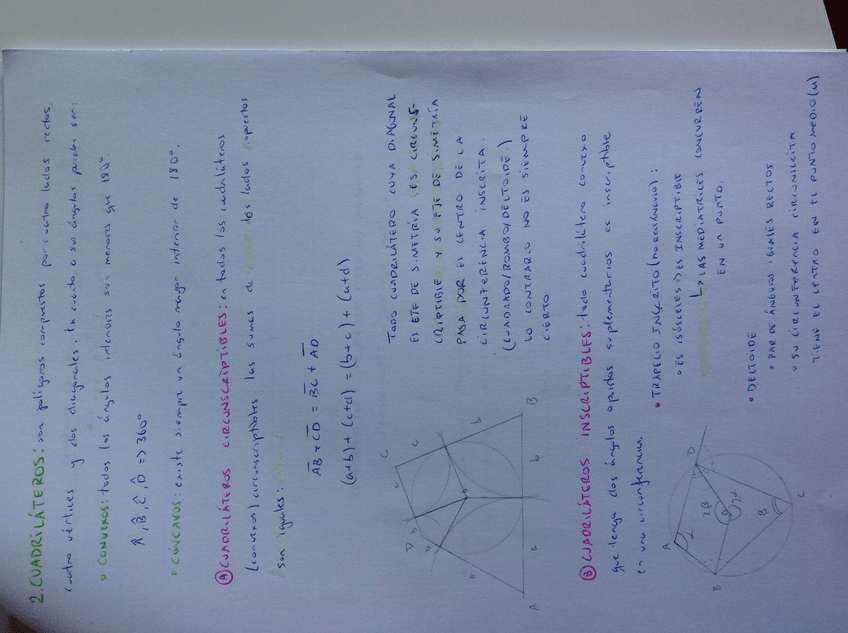 2. CUADRILÁTEROS: son polígonos compuestos por cuatro lados rectos,
cuatro vértices y dos diagonales. En cuanto a sus ángulos pueden ser:
CONVEXOS: todos los ángulos interiores son menores que 180°
Â, B̂, Ĉ, D̂ => 360°
CONCAVOS: existe siempre un ángulo mayor interior de 180°.
A CUADRILÁTEROS CIRCUNSCRIPTIBLES: en todos los cuadriláteros
(convexos) circunscriptibles las sumas de dos lados opuestos
son iguales:
AB + CD = BC + AD
(a+b) + (c+d) = (b+c) + (a+d)
TODO CUADRILÁTERO CUYA DIAGONAL
ES EJE DE SIMETRÍA ES CIRCUNS-
CRIPTIBLE Y SU EJE DE SIMETRÍA
PASA POR EL CENTRO DE LA
CIRCUNFERENCIA INSCRITA.
(CUADRADO/ROMBO/DELTOIDE)
LO CONTRARIO NO ES SIEMPRE
CIERTO
B CUADRILÁTEROS INSCRIPTIBLES: todo cuadrilátero convexo
que tenga dos ángulos opuestos suplementarios es inscriptible
en una circunferencia.
TRAPECIO INSCRITO (no rectángulo):
ES ISÓSCELES => ES INSCRIPTIBLE
↳ LAS MEDIATRICES CONCURREN
EN UN PUNTO.
DELTOIDE
PAR DE ÁNGULOS IGUALES RECTOS
SU CIRCUNFERENCIA CIRCUNSCRITA
TIENE EL CENTRO EN EL PUNTO MEDIO (M)